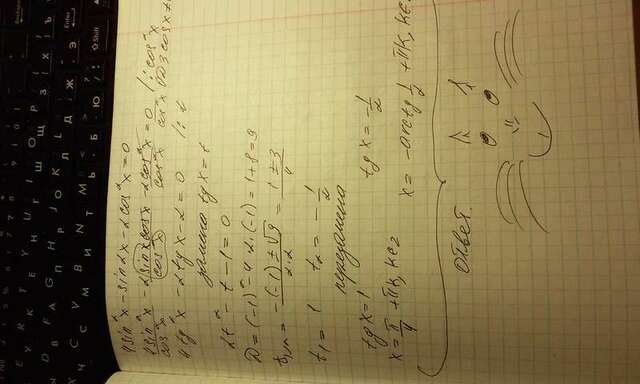 4sin²x - sin2x - 2cos²x = 0
4sin²x/cos²x - 2sinx cosx/cos²x - 2cos²x/cos²x = 0/cos²x /: cos²x
4tg²x - 2tgx - 2 = 0 /: 2
замена tgx = t
2t² - t - 1 = 0
D = (-1)² - 4·2·(-1) = 1 + 8 = 9
t₁,₂ = (-(-1) ± √9)/(2·2) = (1 ± 3)/4
t₁ = 1 t₂ = -1/2
перезамена
tgx = 1 tgx = -1/2
x = π/4 + πk, k∈z x = -arctg 1/2 + πk, k∈
ответ.